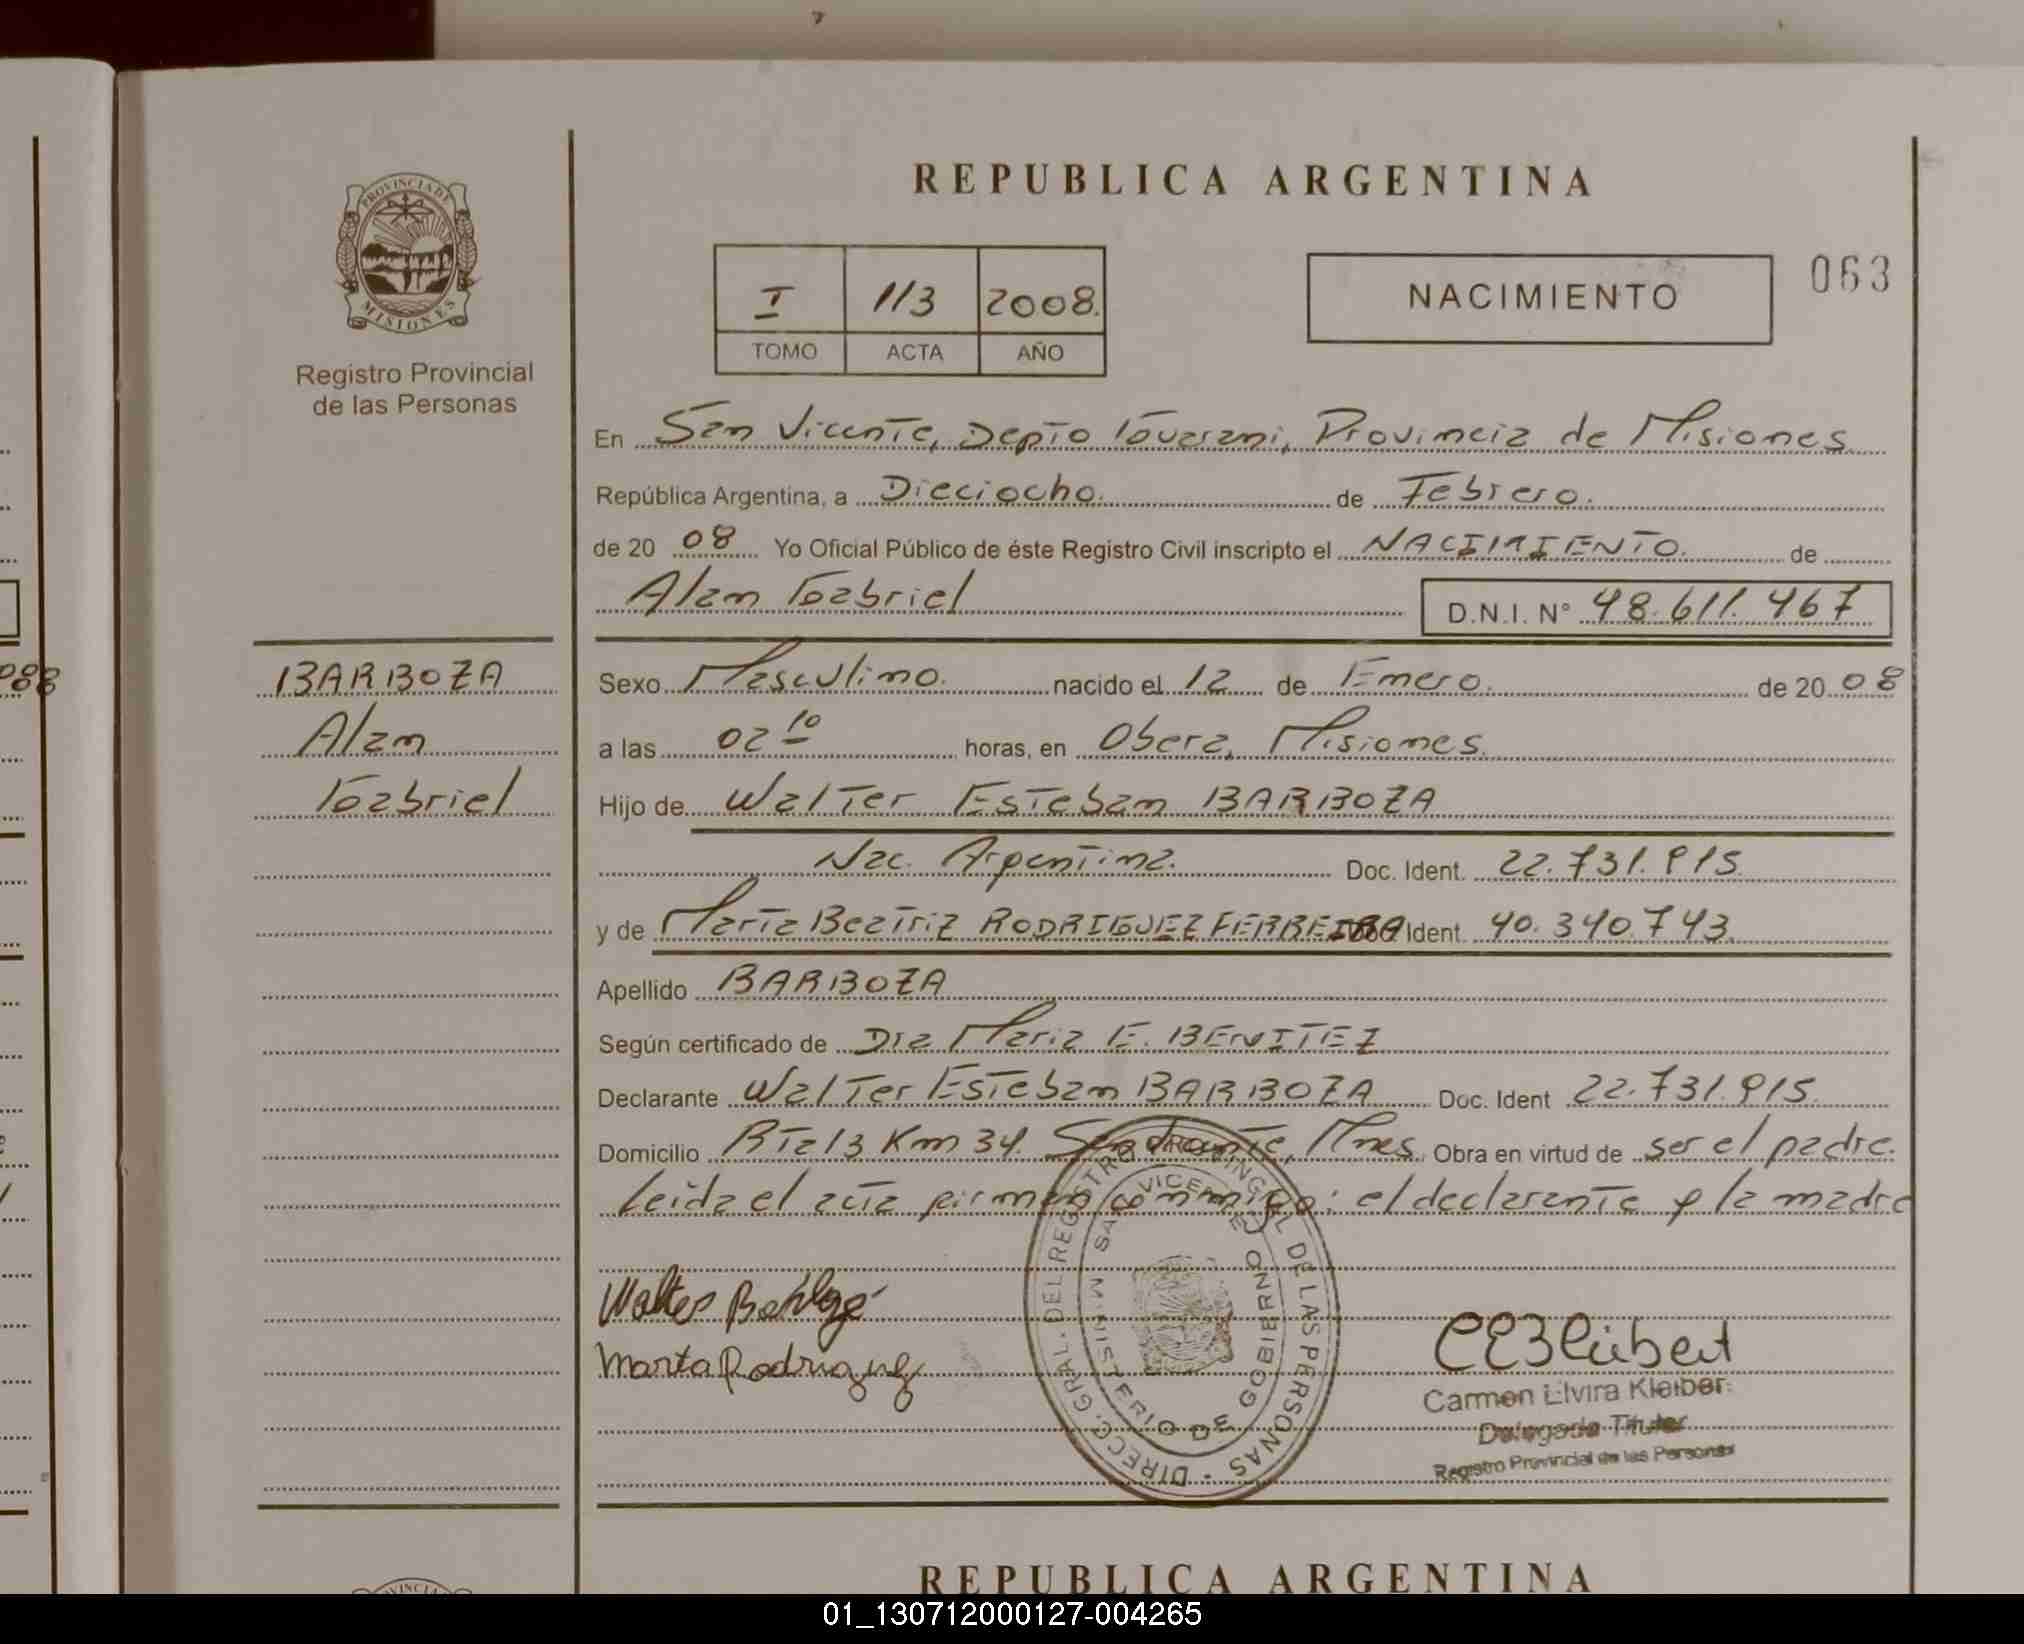 REPUBLICA ARGENTINA
PROVINCIA DE MISIONES
Registro Provincial
de las Personas
I 113 2008.
TOMO ACTA AÑO
NACIMIENTO
063
En San Vicente, Depto Guarani, Provincia de Misiones
República Argentina, a Dieciocho. de Febrero.
de 20 08 Yo Oficial Público de éste Registro Civil inscripto el NACIMIENTO. de
Alan Gabriel D.N.I. N° 48.611.467
BARBOZA
Alan
Gabriel
Sexo Masculino. nacido el 12 de Enero. de 20 08
a las 02 10 horas, en Obera, Misiones.
Hijo de Walter Esteban BARBOZA
Nac. Argentina. Doc. Ident. 22.731.915
y de Marta Beatriz RODRIGUEZ FERREIRA Ident. 40.340.743.
Apellido BARBOZA
Según certificado de Dra Maria E. BENITEZ
Declarante Walter Esteban BARBOZA Doc. Ident 22.731.915
Domicilio Rta 13 Km 34. San Vicente, Mnes. Obra en virtud de ser el padre.
Leida el acta firman conmigo: el declarante y la madre
Marta Rodriguez
DIRECC. GRAL. DEL REGISTRO PROVINCIAL DE LAS PERSONAS
SAN VICENTE
MINISTERIO DE GOBIERNO
Carmen Elvira Kleiber
Delegada Titular
Registro Provincial de las Personas
REPUBLICA ARGENTINA
01_130712000127-004265